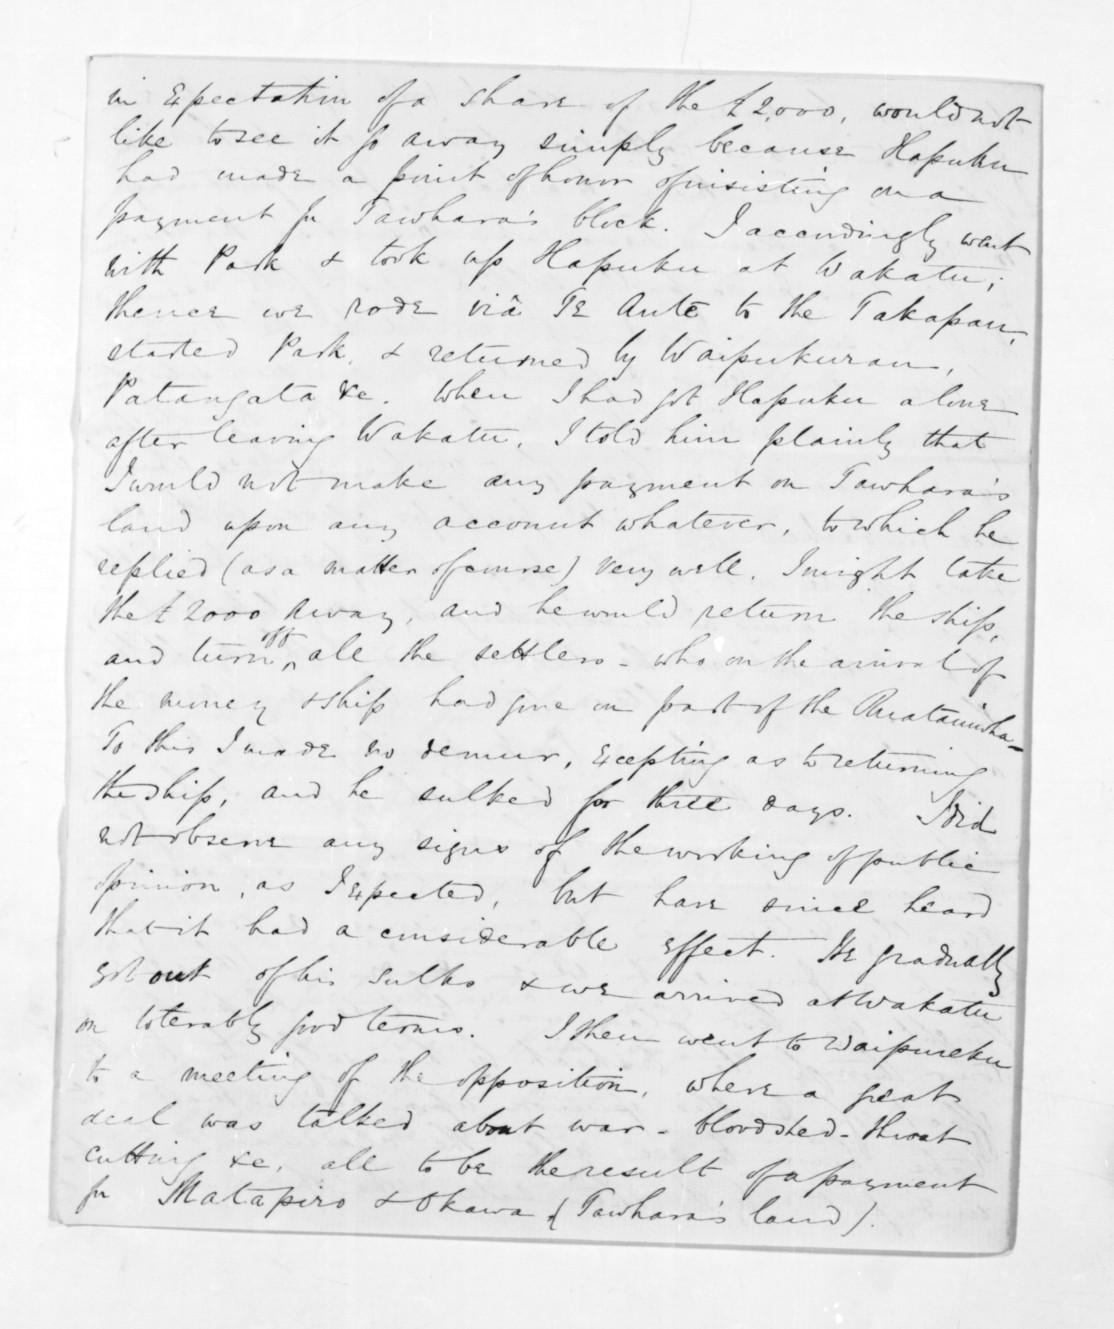 in Expectation of a share of the £2,000, would not
like to see it go away simply because Hapuku
had made a point of honor of insisting on a
payment for Tawhara's block. I accordingly went
with Park & took up Hapuku at Wakatu;
thence we rode viâ TE Aute to the Takapau,
started Park, & returned by Waipukurau,
Patangata &c. When I had got Hapuku alone
after leaving Wakatu, I told him plainly that
I would not make any payment on Tawhara's
land upon any account whatever, to which he
replied (as a matter of course) very well, I might take
the £2000 away, and he would return the ship,
and turn off all the settlers - who on the arrival of
the money & ship had gone on part of the Ruataniwha -
To this I made no demur, Excepting as to returning
the ship, and he sulked for three days. I did
not observe any signs of the working of public
opinion, as I Expected, but have since heard
that it had a considerable effect. He gradually
got out of his sulks & we arrived at Wakatu
on tolerably good terms. I then went to Waipureku
to a meeting of the opposition, where a great
deal was talked about war - bloodshed - throat
cutting &c. all to be the result of a payment
for Matapiro & Okawa (Tawhara's land).